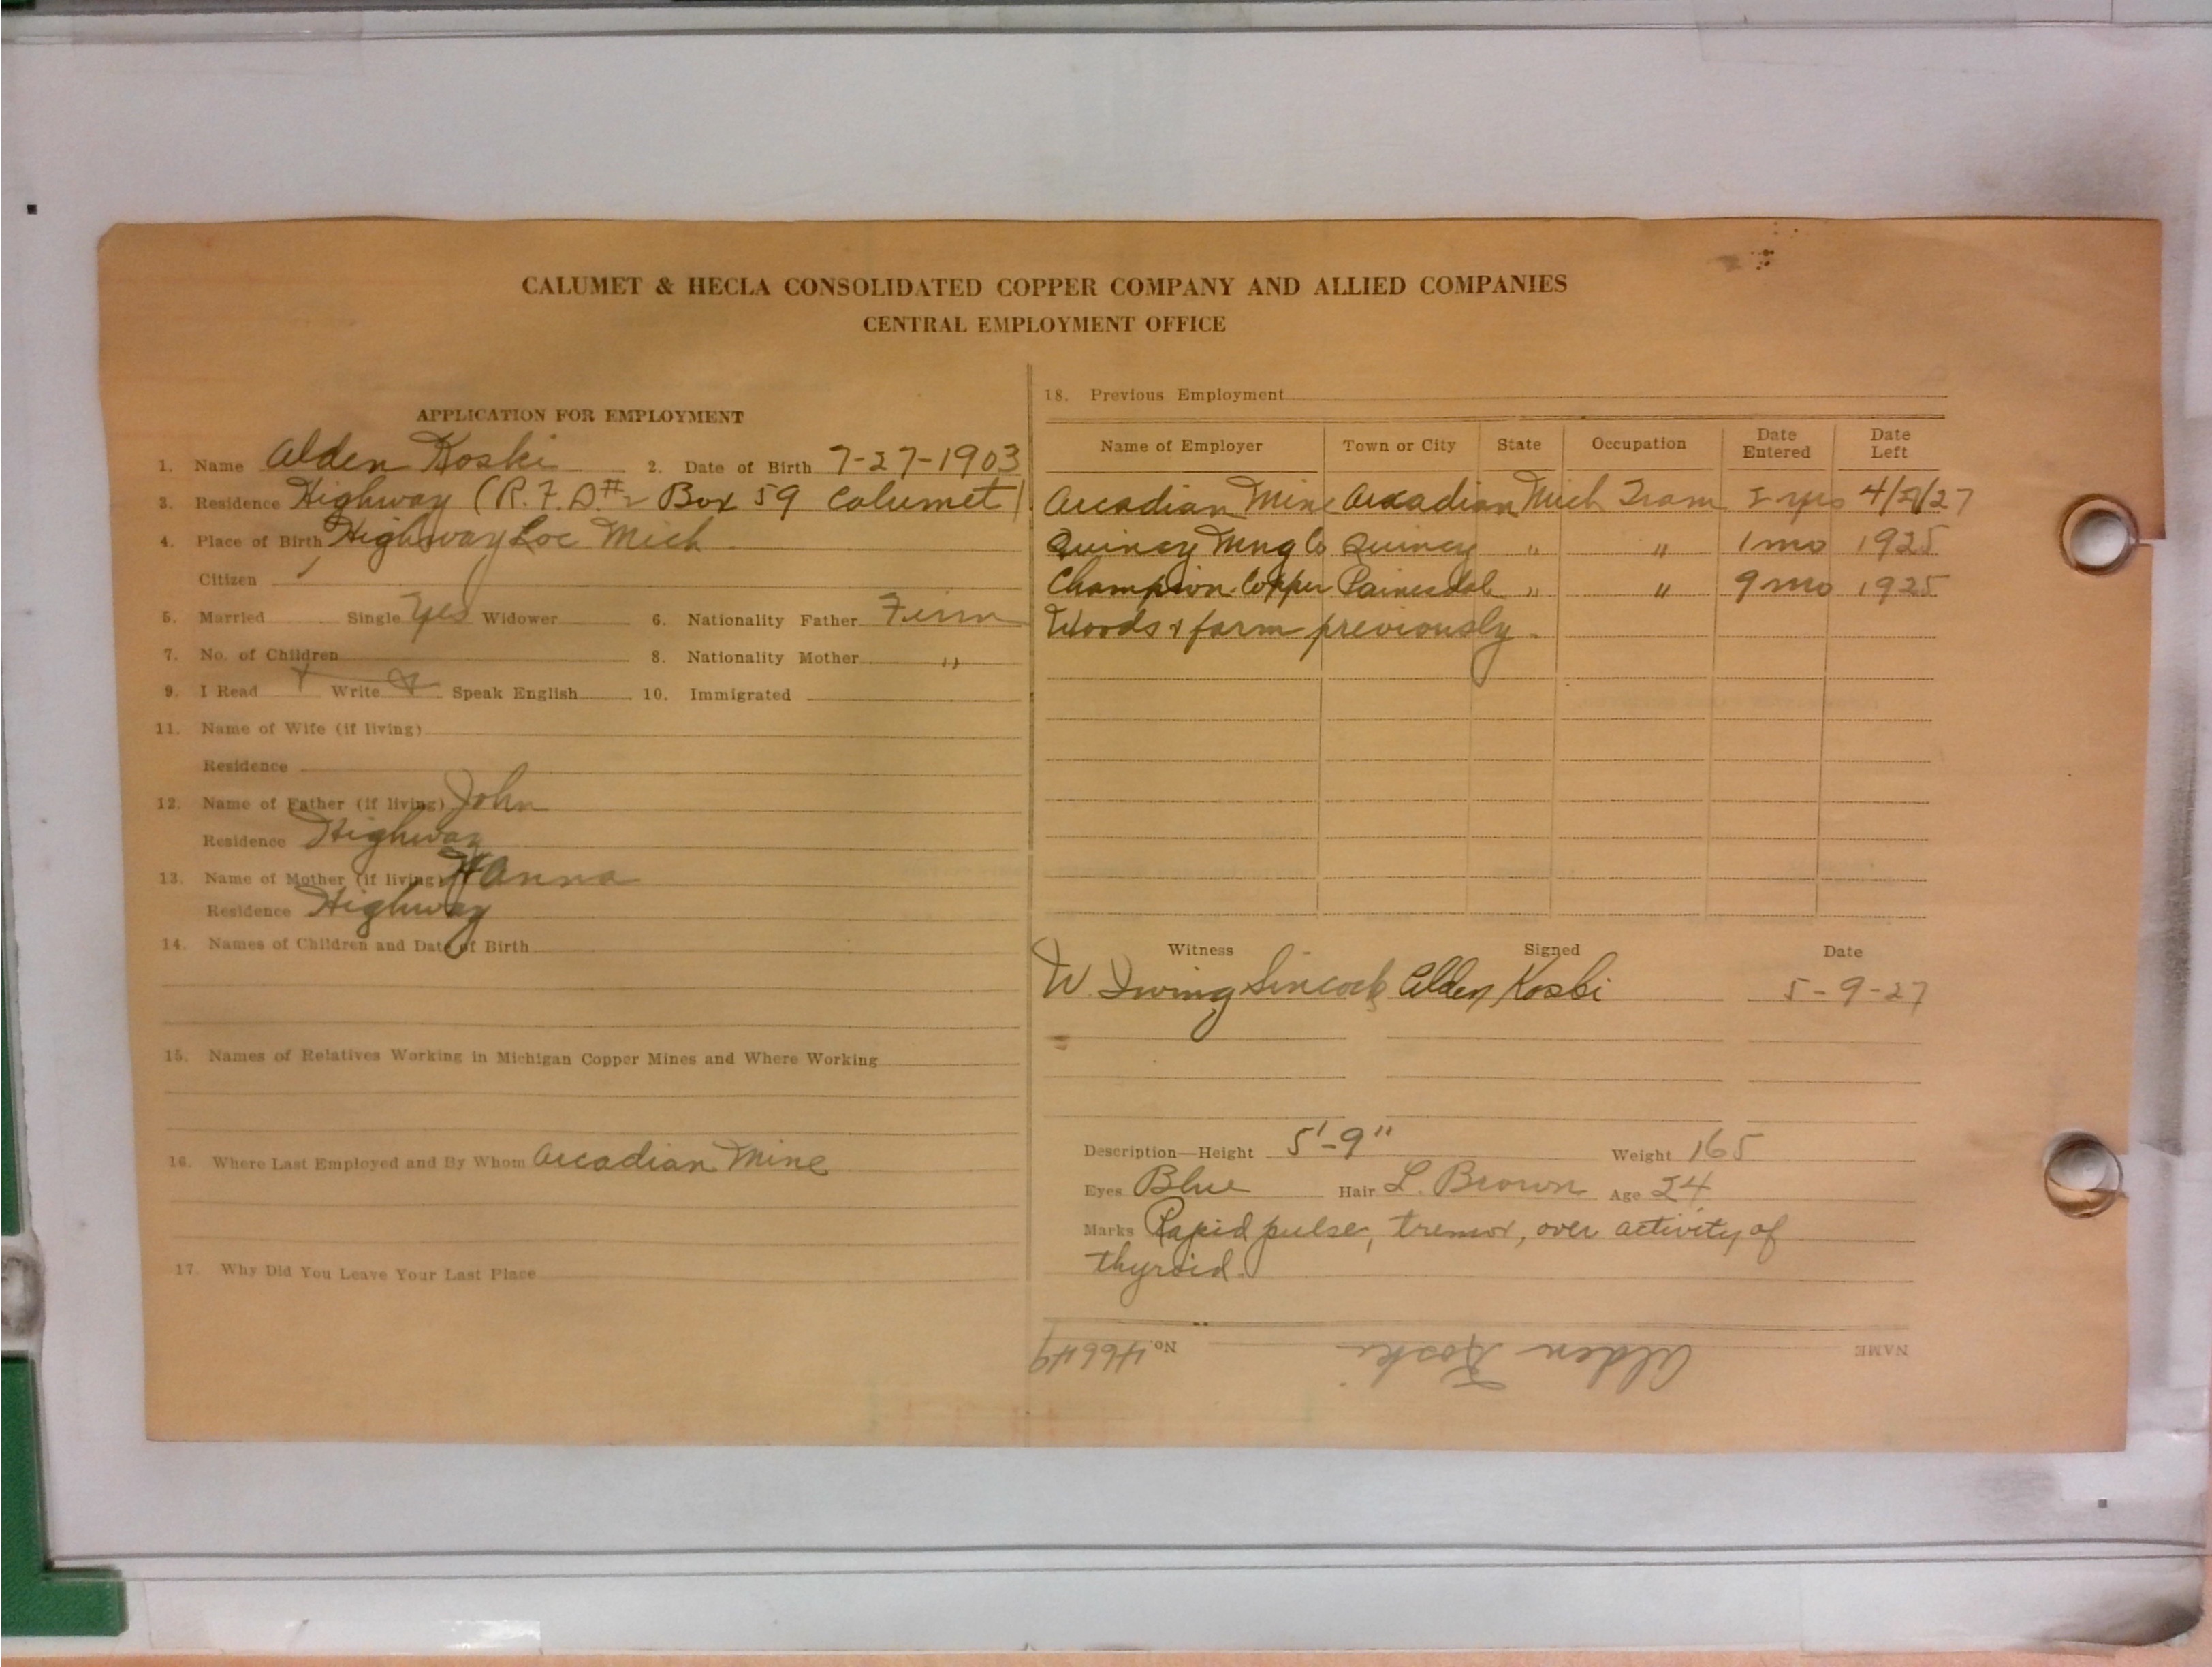 CALUMET & HECLA CONSOLIDATED COPPER COMPANY AND ALLIED COMPANIES
CENTRAL EMPLOYMENT OFFICE
APPLICATION FOR EMPLOYMENT
1. Name Alden Koski 2. Date of Birth 7-27-1903
3. Residence Highway (R.F.D.#2 Box 59 Calumet)
4. Place of Birth Highway Loc Mich
Citizen
5. Married Single Yes Widower 6. Nationality Father Finn
7. No. of Children 8. Nationality Mother "
9. I Read Write Speak English 10. Immigrated
11. Name of Wife (if living)
Residence
12. Name of Father (if living) John
Residence Highway
13. Name of Mother (if living) Hanna
Residence Highway
14. Names of Children and Date of Birth
15. Names of Relatives Working in Michigan Copper Mines and Where Working
16. Where Last Employed and By Whom Arcadian Mine
17. Why Did You Leave Your Last Place
18. Previous Employment
Name of Employer Town or City State Occupation Date Entered Date Left
Arcadian Mine Arcadian Mich Tram yrs 4/ /27
Quincy Mng Co Quincy " " 1 mo 1925
Champion Copper Painesdal " " 9 mo 1925
Woods & farm previously.
Witness Signed Date
W. Irving Sincock Alden Koski 5-9-27
Description—Height 5'-9" Weight 165
Eyes Blue Hair L. Brown Age 24
Marks Rapid pulse, tremor, over activity of
thyroid.
NAME Alden Koski No. 46649